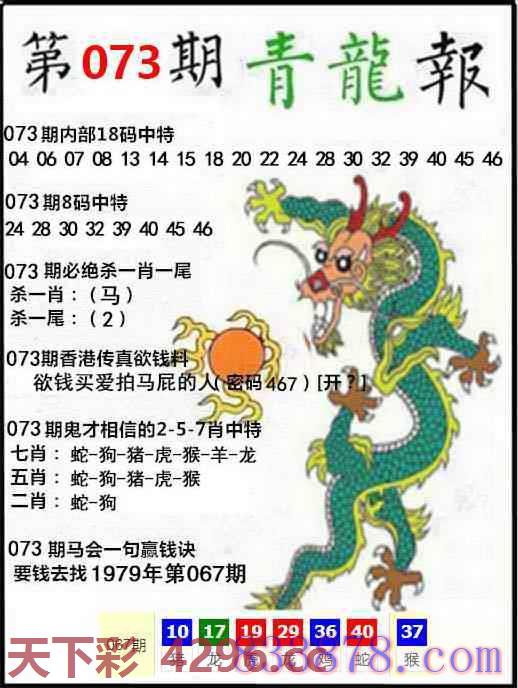 第073期 青龍報
073期内部18码中特
04 06 07 08 13 14 15 18 20 22 24 28 30 32 39 40 45 46
073期8码中特
24 28 30 32 39 40 45 46
073期必绝杀一肖一尾
杀一肖：（马）
杀一尾：（2）
073期香港传真欲钱料
欲钱买爱拍马屁的人(密码467)[开?]
073期鬼才相信的2-5-7肖中特
七肖：蛇-狗-猪-虎-猴-羊-龙
五肖：蛇-狗-猪-虎-猴
二肖：蛇-狗
073期马会一句赢钱诀
要钱去找1979年第067期
067期 10 17 19 29 36 40 37
猪 龙 虎 龙 鸡 蛇 猴
天下彩 4296.cc
878.com